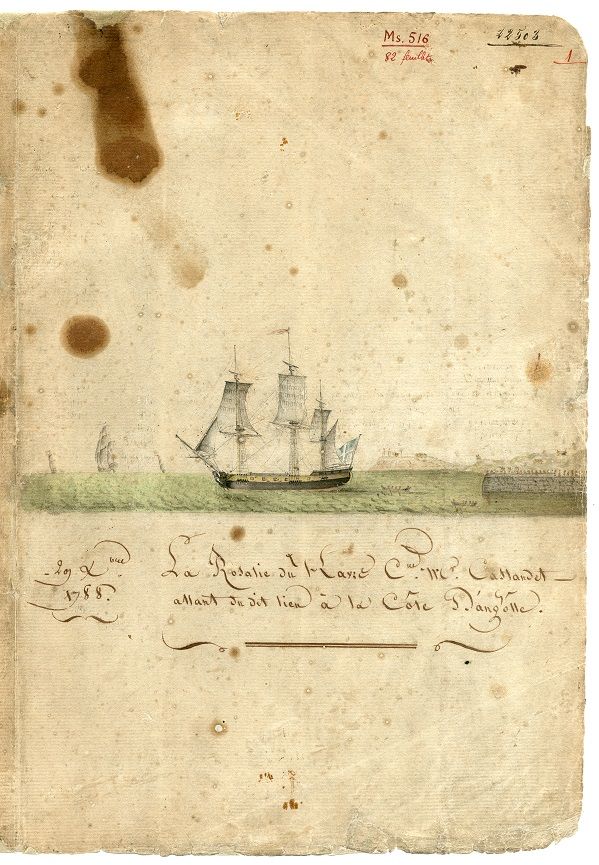 Ms. 516
82 feuillets
22503
1
29 Xbre
1788.
La Rosalie du h-Lavre Cne Mr. Cassandet
allant du dit lieu à la Côte D'angolle.